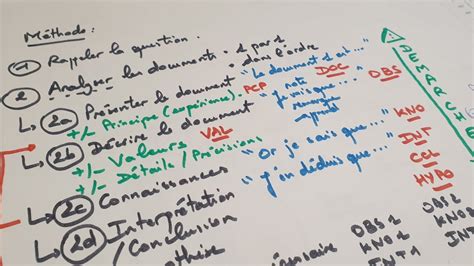 Méthode :
① Rappeler la question.
② Analyser les documents • 1 par 1
• dans l'ordre
↳ 2a Présenter le document "Le document 1 est..."
+/- Principe (expérience) PCP note DOC
↳ 2b Décrire le document "je vois que..." OBS
VAL remarque
+/- Valeurs
+/- Détails / Précisions
↳ 2c Connaissances "Or je sais que..." KNO
↳ 2d Interprétation "j'en déduis que..." INT
/ Conclusion CCL
HYPO
DEMARCH
OBS 1 OBS
KNO 1 KNO
INT 1